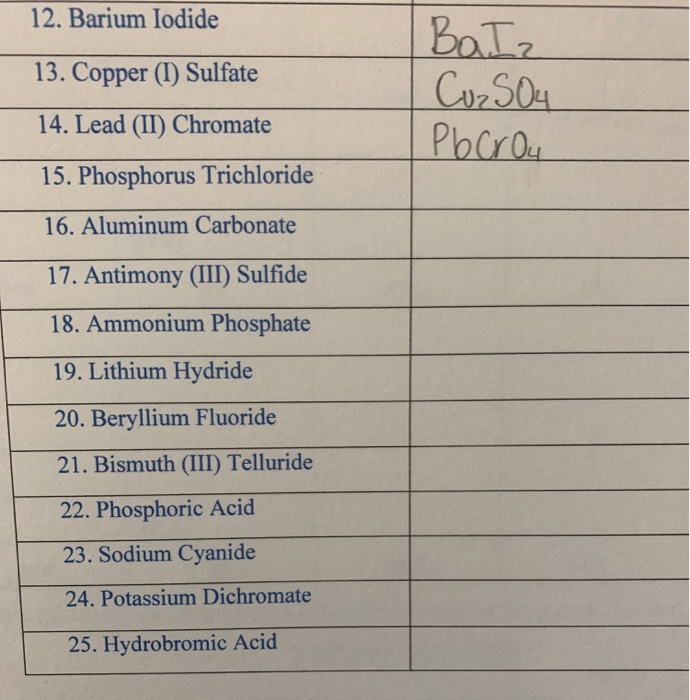 12. Barium Iodide BaI2
13. Copper (I) Sulfate Cu2SO4
14. Lead (II) Chromate PbCrO4
15. Phosphorus Trichloride
16. Aluminum Carbonate
17. Antimony (III) Sulfide
18. Ammonium Phosphate
19. Lithium Hydride
20. Beryllium Fluoride
21. Bismuth (III) Telluride
22. Phosphoric Acid
23. Sodium Cyanide
24. Potassium Dichromate
25. Hydrobromic Acid